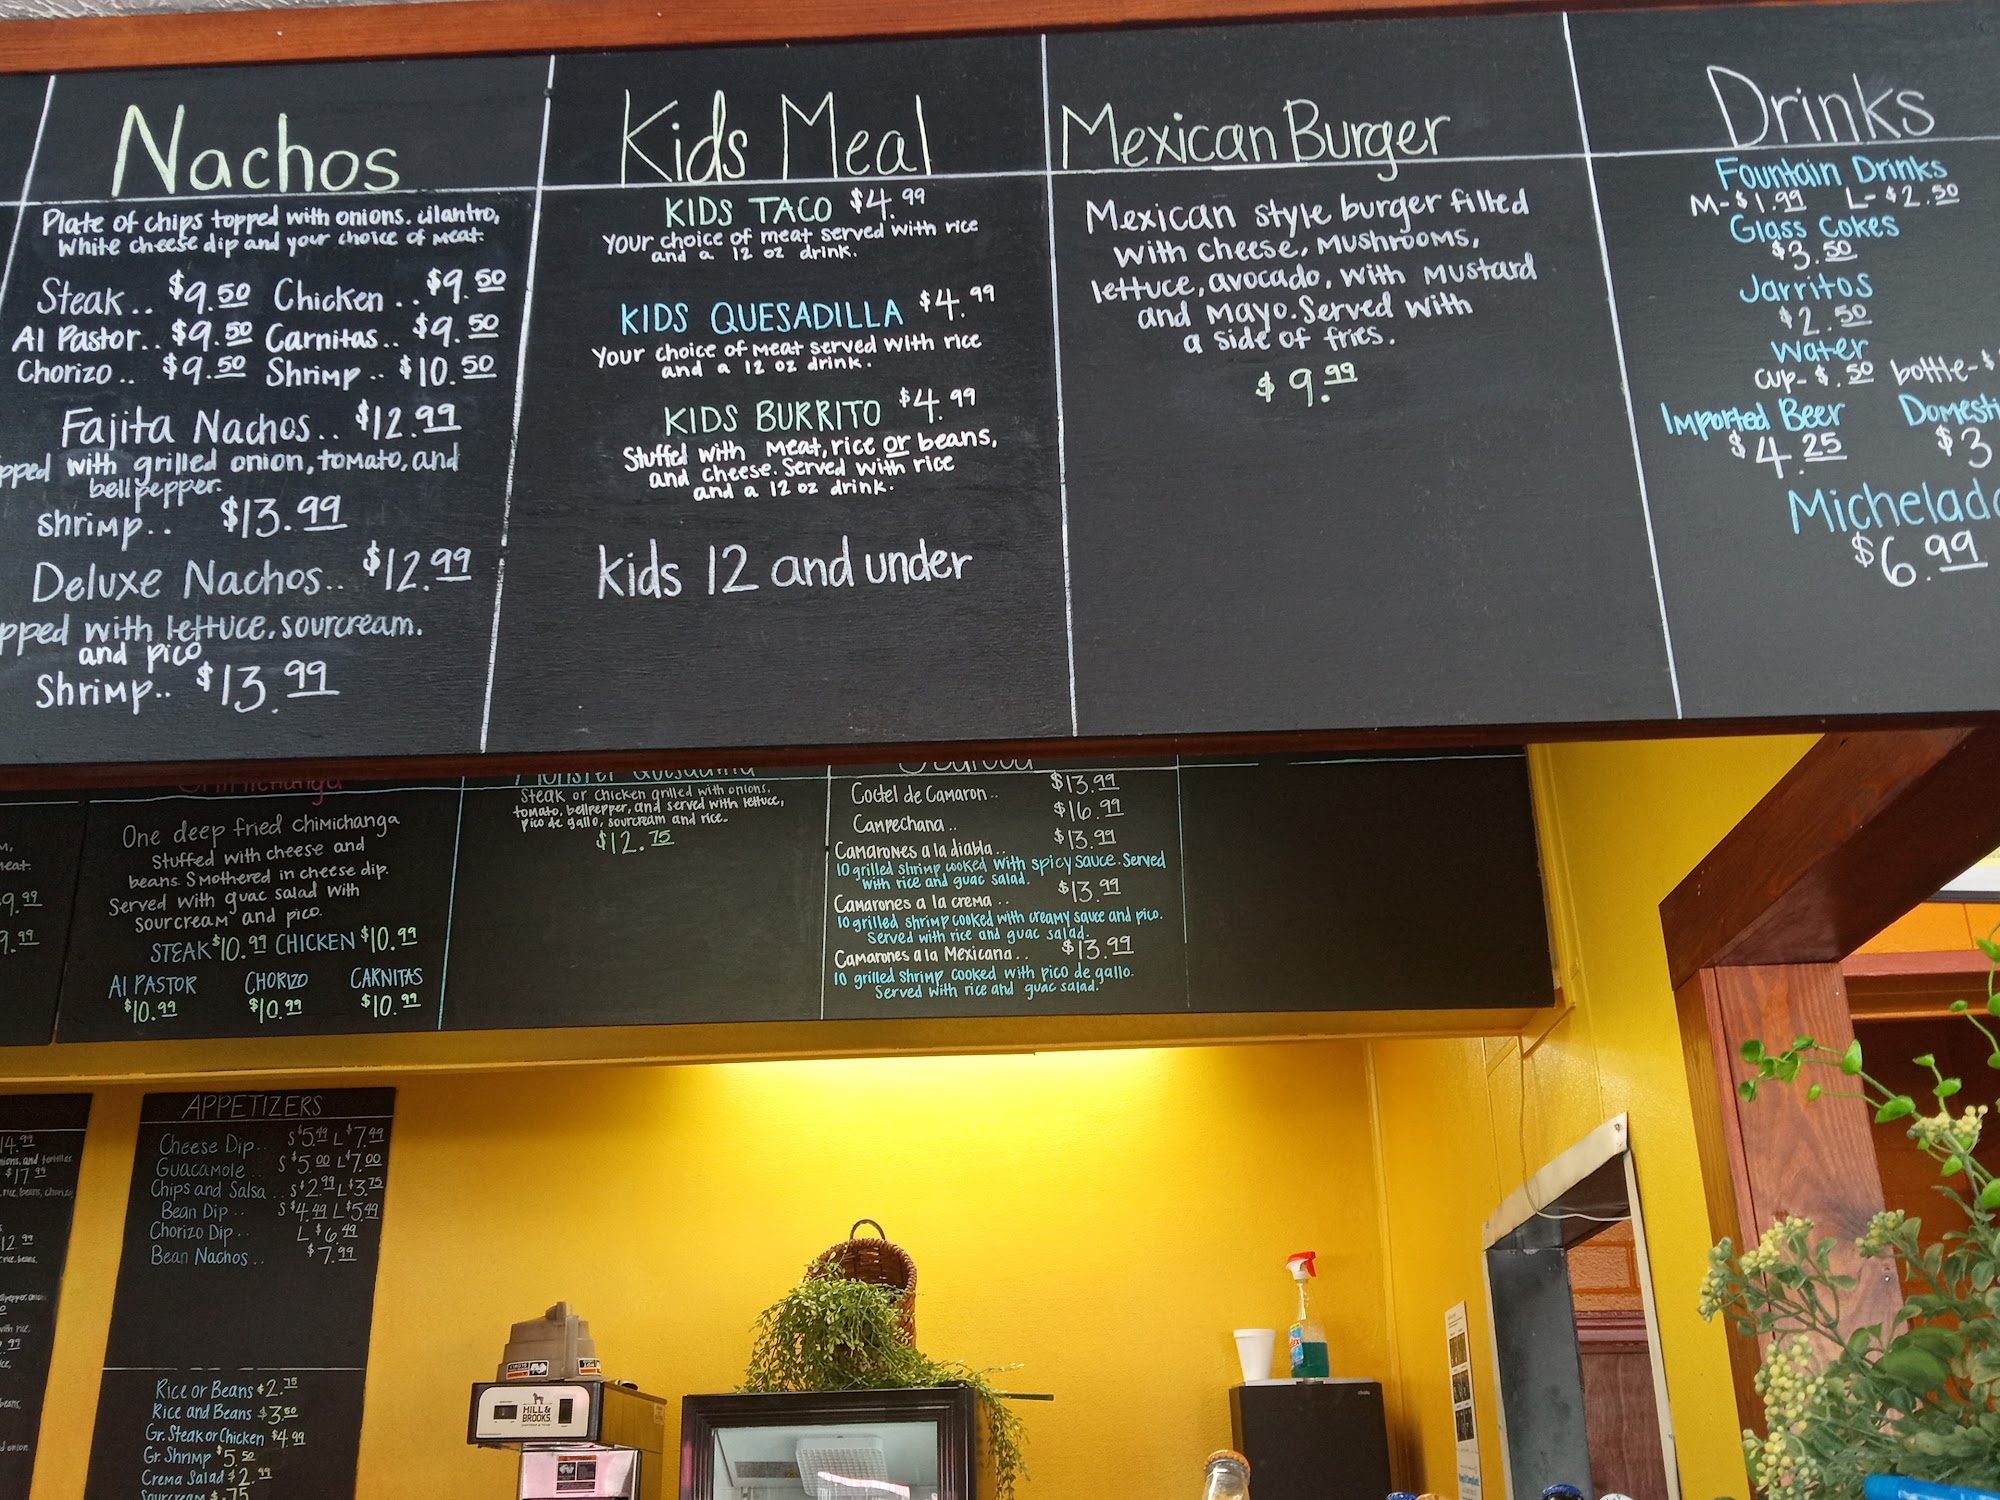 Nachos
Plate of chips topped with onions. cilantro,
White cheese dip and your choice of meat.
Steak.. $9.50 Chicken.. $9.50
Al Pastor.. $9.50 Carnitas.. $9.50
Chorizo.. $9.50 Shrimp.. $10.50
Fajita Nachos.. $12.99
with grilled onion, tomato, and
bellpepper.
shrimp.. $13.99
Deluxe Nachos.. $12.99
with lettuce, sourcream.
and pico
Shrimp.. $13.99
Kids Meal
KIDS TACO $4.99
Your choice of meat served with rice
and a 12 oz drink.
KIDS QUESADILLA $4.99
Your choice of meat served with rice
and a 12 oz drink.
KIDS BURRITO $4.99
Stuffed with meat, rice or beans,
and cheese. Served with rice
and a 12 oz drink.
kids 12 and under
Mexican Burger
Mexican style burger filled
with cheese, mushrooms,
lettuce, avocado, with mustard
and mayo. Served with
a side of fries.
$9.99
Drinks
Fountain Drinks
M-$1.99 L-$2.50
Glass cokes
$3.50
Jarritos
$2.50
Water
cup-$.50 bottle-$
Imported Beer
$4.25
$3
$6.99
Chimichanga
One deep fried chimichanga
Stuffed with cheese and
beans. Smothered in cheese dip.
Served with guac salad with
sourcream and pico.
STEAK $10.99 CHICKEN $10.99
Al PASTOR CHORIZO CARNITAS
$10.99 $10.99 $10.99
Monster Quesadilla
Steak or chicken grilled with onions.
tomato, bellpepper, and served with lettuce,
pico de gallo, sourcream and rice..
$12.75
Seafood
Coctel de Camaron.. $13.99
Campechana.. $16.99
Camarones a la diabla.. $13.99
10 grilled shrimp cooked with spicy sauce. Served
with rice and guac salad.
Camarones a la crema.. $13.99
10 grilled shrimp cooked with creamy sauce and pico.
Served with rice and guac salad.
Camarones a la Mexicana.. $13.99
10 grilled shrimp cooked with pico de gallo.
Served with rice and guac salad.
APPETIZERS
Cheese Dip.. S $5.49 L $7.49
Guacamole.. S $5.00 L $7.00
Chips and Salsa.. S $2.99 L $3.75
Bean Dip.. S $4.49 L $5.49
Chorizo Dip.. L $6.49
Bean Nachos.. $7.99
Rice or Beans $2.75
Rice and Beans $3.50
Gr. Steak or Chicken $4.99
Gr. Shrimp $5.50
Crema Salad $2.99
Sourcream $.75
HILL &
BROOKS